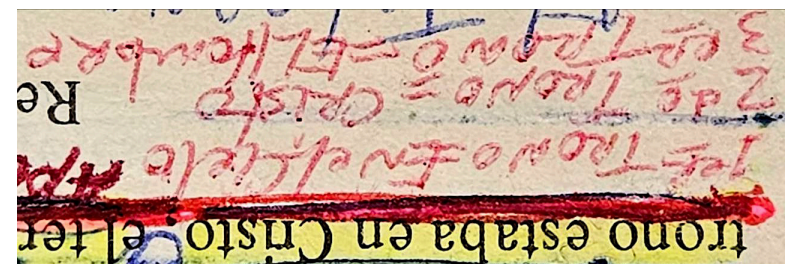 trono estaba en Cristo; el ter
1er TRONO = EN el Cielo
2 do TRONO = CRISTO Re
3 er TRONO = EL Hombre